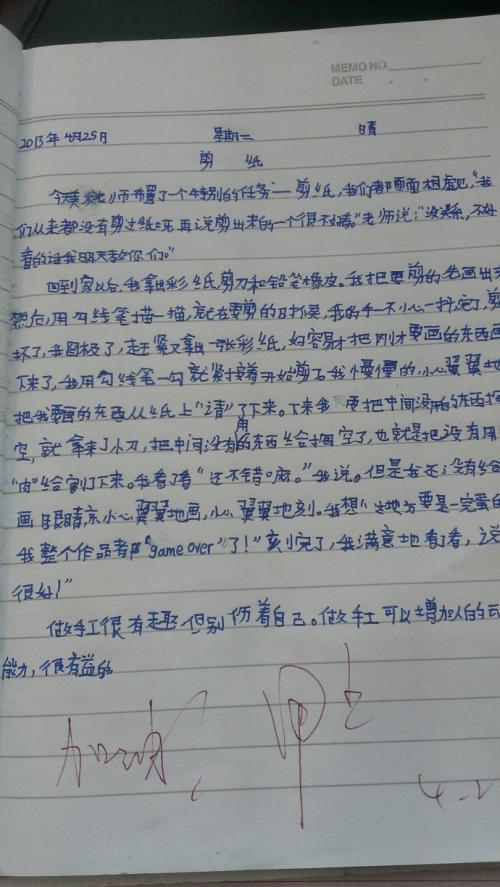 MEMO NO.
DATE
2013年4月25日 星期二 晴
剪 纸
今天老师布置了一个特别的任务——剪纸，我们都面面相觑，“我
们从来都没有剪过纸呀再说剪出来的一个很不好。”老师说：“没关系，不好
看的话我明天教你们。”
回到家以后，我拿出彩纸剪刀和铅笔橡皮。我把要剪的先画出来
然后，用勾线笔描一描，就在要剪的时候，我的手一不小心一抖，完了，剪
坏了，我困极了，赶紧又拿出一张彩纸，好容易才把刚才要画的东西画
下来了，我用勾线笔一勾就紧接着开始剪了我慢慢的，小心翼翼地
把我要画的东西从纸上“请”了下来。下来我要把中间没用的东西挖
空，就拿来了小刀，把中间没有用的东西给掏空了，也就是把没有用
“肉”给割了下来。我看了看“还不错嘛。”我说。但是我还没有给
画眼睛，小心翼翼地画，小心翼翼地刻。我想“这地方要是一完蛋的
我整个作品都“game over”了！”刻完了，我满意地看了看，这
很好！”
做手工很有趣，但别伤着自己。做手工可以增加人的
能力，很有益的
加油